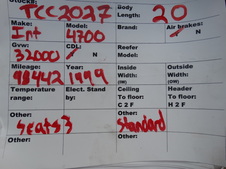 Stock#: TCC2027 Body Length: 20
Make: Int Model: 4700 Brand: Air brakes: N
Gvw: 32000 CDL: N Reofer Model:
Mileage: 98442 Year: 1999 Inside Width: (IW) Outside Width: (OW)
Temperature range: Elect. Stand by: Ceiling To floor: C 2 F Header To floor: H 2 F
Other: Seats 3 Other: Standard
Other: